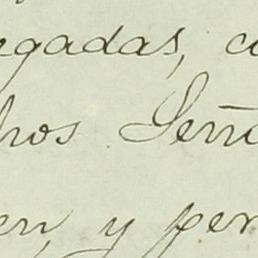 egadas, c
hos Seño
en, y per